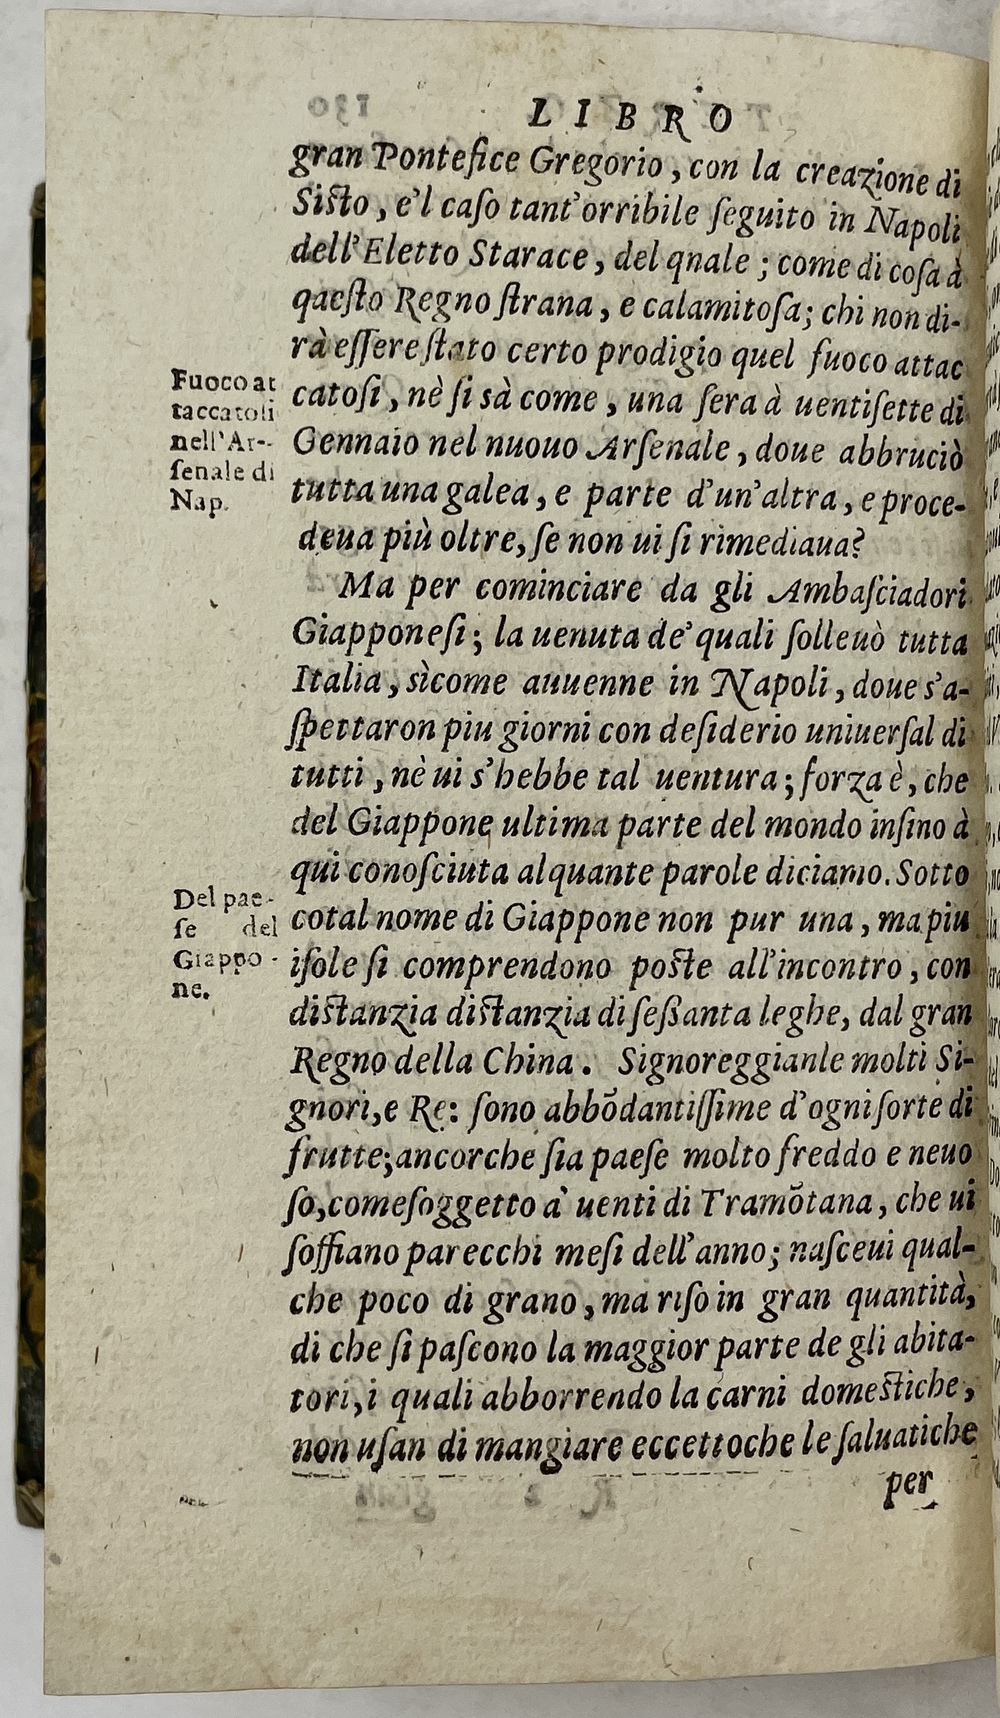 LIBRO
gran Pontefice Gregorio, con la creazione di
Sisto, e'l caſo tant'orribile ſeguito in Napoli
dell'Eletto Starace, del qnale; come di coſa à
qaeſto Regno ſtrana, e calamitoſa; chi non di-
rà eſſere ſtato certo prodigio quel fuoco attac
catoſi, nè ſi sà come, una ſera à uentiſette di
Gennaio nel nuouo Arſenale, doue abbruciò
tutta una galea, e parte d'un'altra, e proce-
deua più oltre, ſe non ui ſi rimediaua?
Fuoco at
taccatoſi
nell'Ar-
ſenale di
Nap.
Ma per cominciare da gli Ambaſciadori
Giapponeſi; la uenuta de' quali ſolleuò tutta
Italia, sìcome auuenne in Napoli, doue s'a-
ſpettaron piu giorni con deſiderio uniuerſal di
tutti, nè ui s'hebbe tal uentura; forza è, che
del Giappone ultima parte del mondo inſino à
qui conoſciuta alquante parole diciamo. Sotto
cotal nome di Giappone non pur una, ma piu
iſole ſi comprendono poste all'incontro, con
distanzia distanzia di ſeßanta leghe, dal gran
Regno della China. Signoreggianle molti Si-
gnori, e Re: ſono abbōdantiſſime d'ogni ſorte di
frutte; ancorche ſia paeſe molto freddo e neuo
ſo, come ſoggetto a' uenti di Tramōtana, che ui
ſoffiano parecchi meſi dell'anno; naſceui qual-
che poco di grano, ma riſo in gran quantità,
di che ſi paſcono la maggior parte de gli abita-
tori, i quali abborrendo la carni domestiche,
non uſan di mangiare eccettoche le ſaluatiche
per
Del pae-
ſe del
Giappo-
ne.